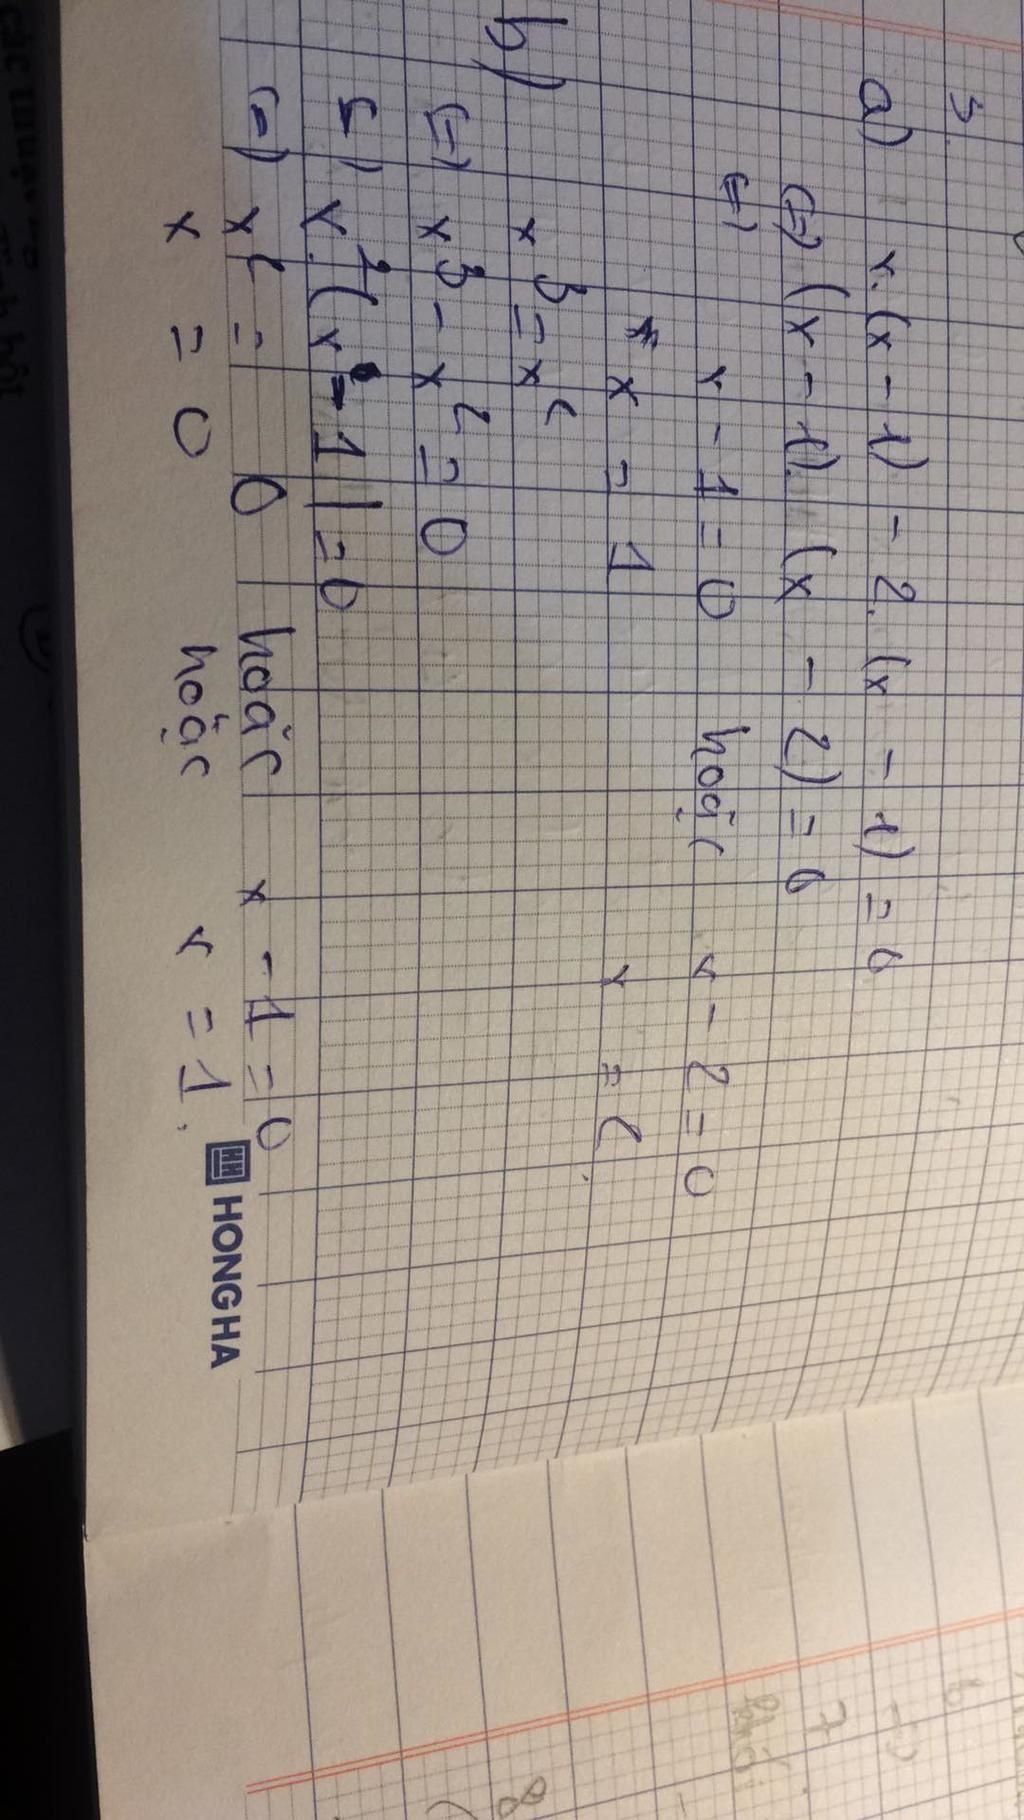 3.
a) x.(x - 1) - 2.(x - 1) = 0
(=) (x - 1).(x - 2) = 0
(=) x - 1 = 0 hoặc x - 2 = 0
x = 1 x = 2.
b) x³ = x²
(=) x³ - x² = 0
(=) x²(x - 1) = 0
(=) x² = 0 hoặc x - 1 = 0
x = 0 hoặc x = 1.
HONG HA